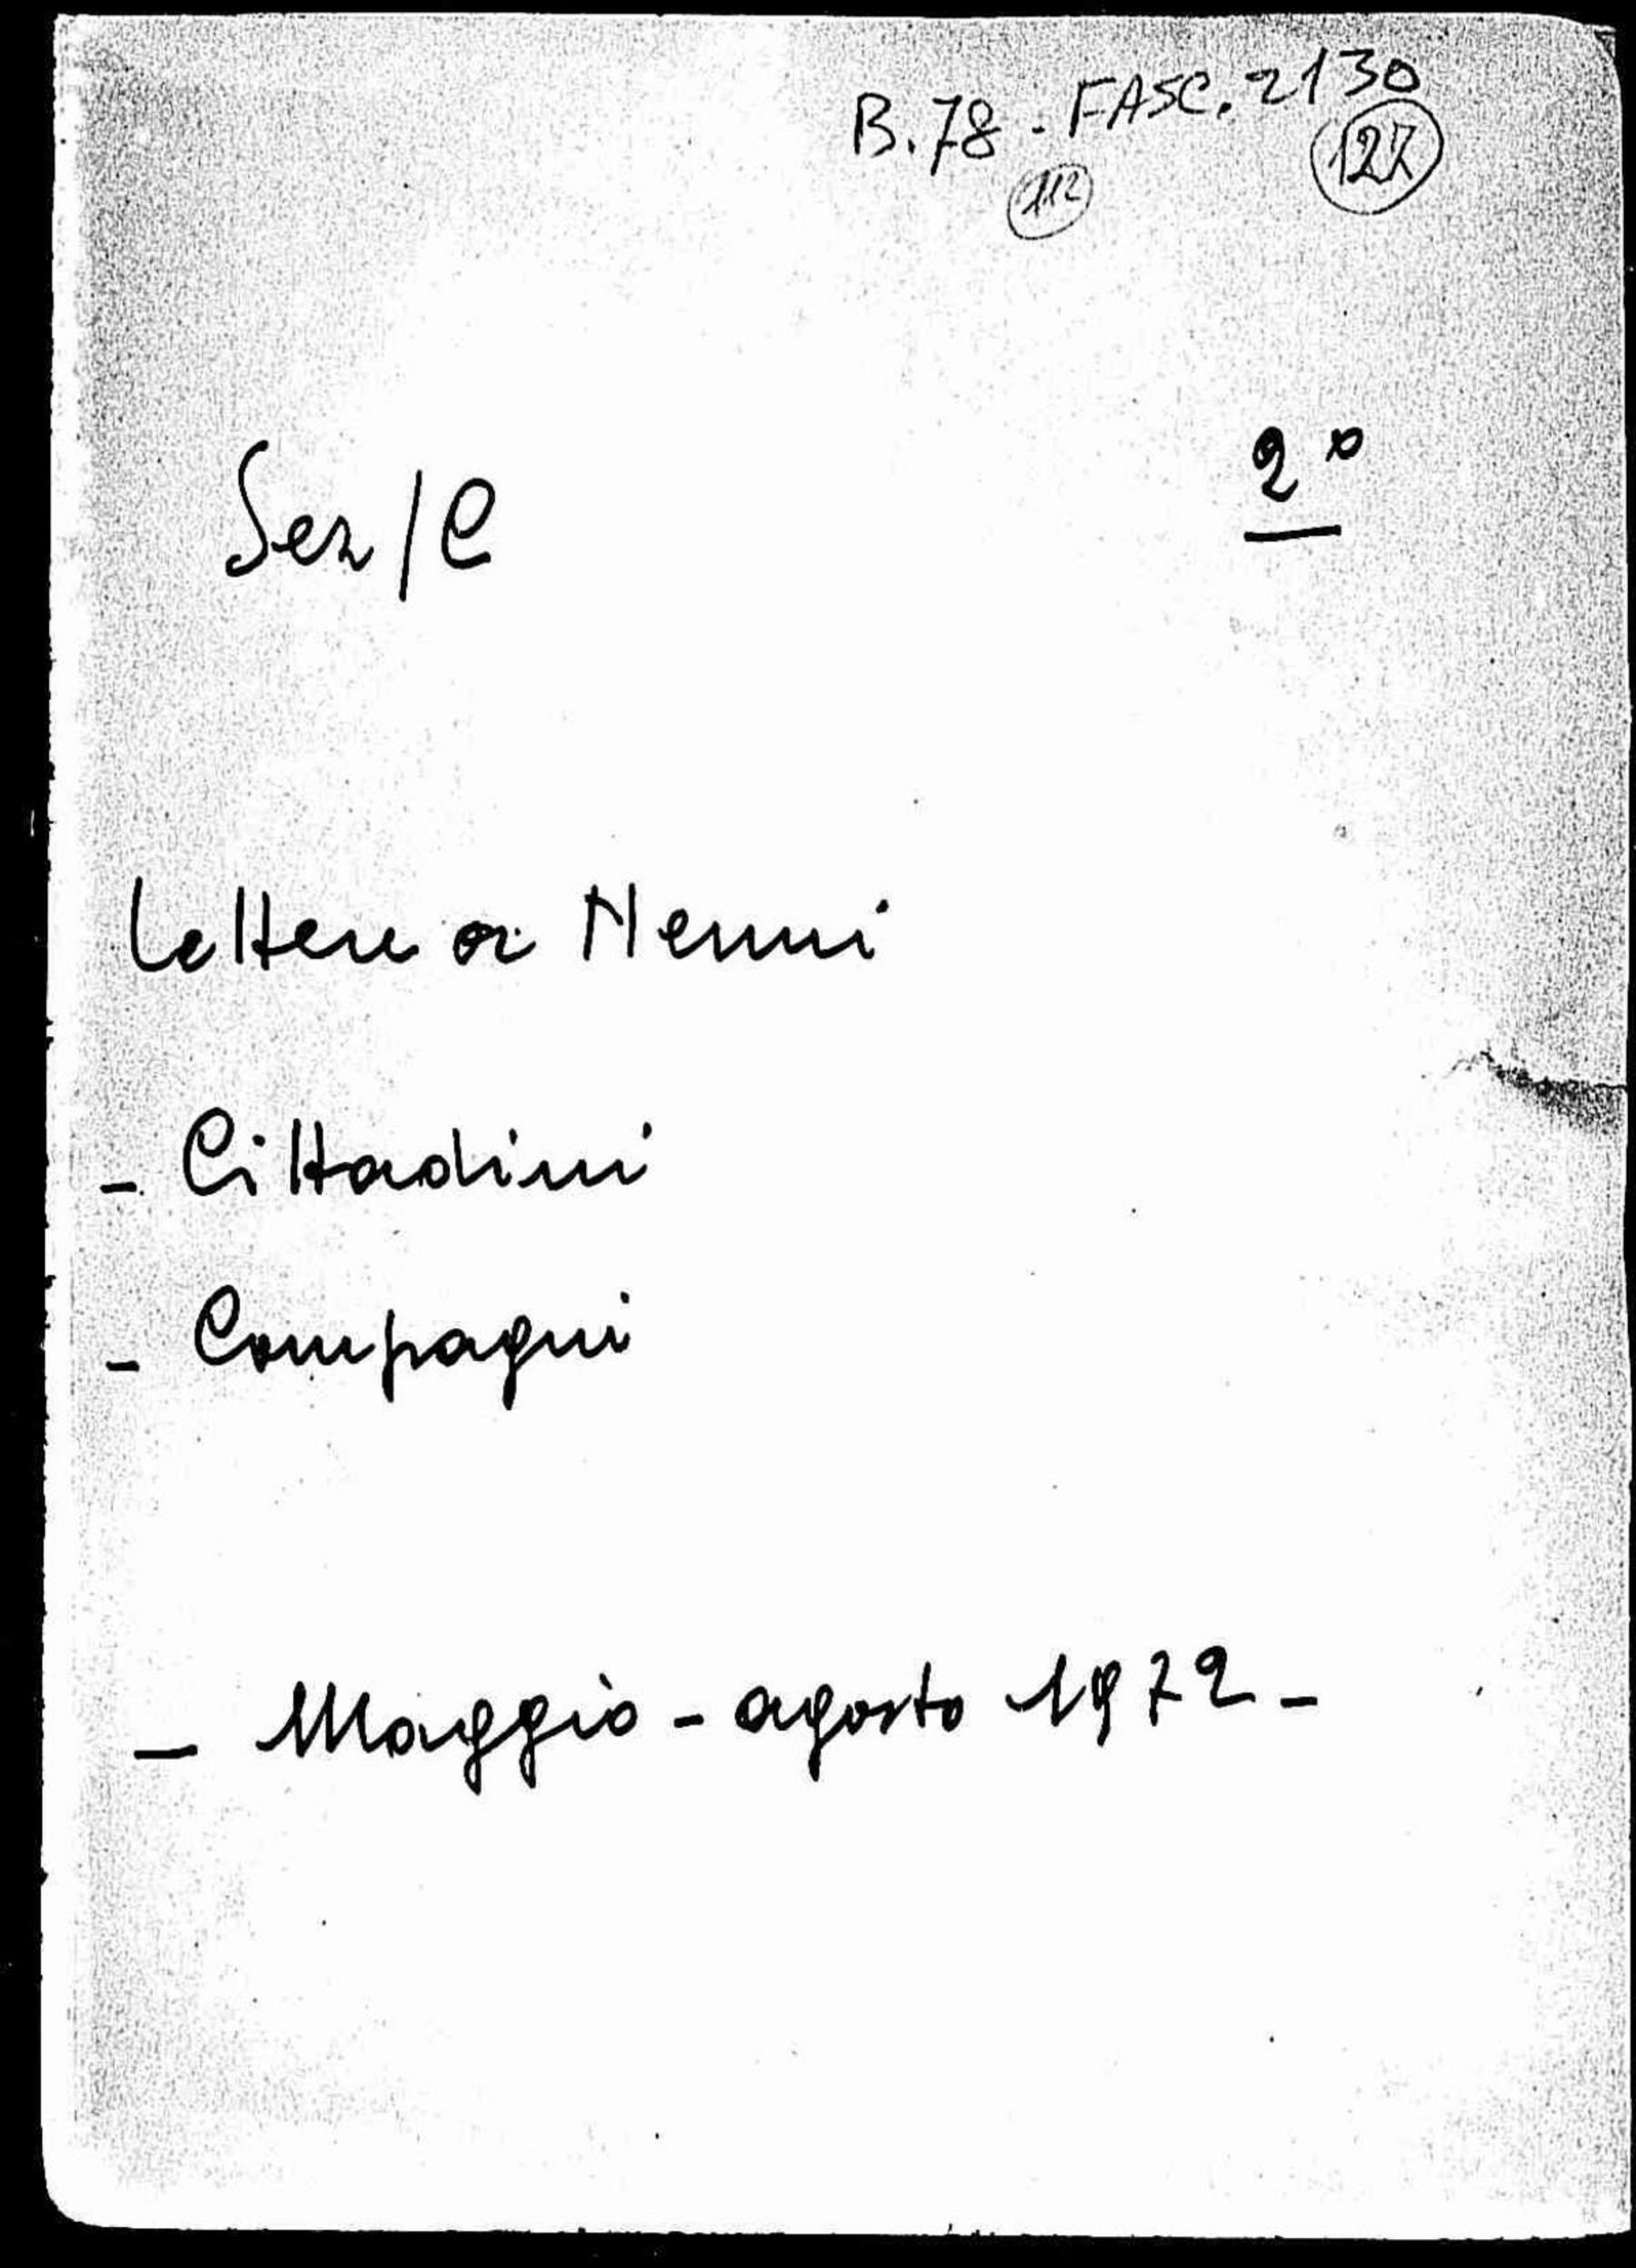 B.78 - FASC. 2130
112
Sez/C
2°
Lettere a Nenni
- Cittadini
- Compagni
- Maggio - agosto 1972 -